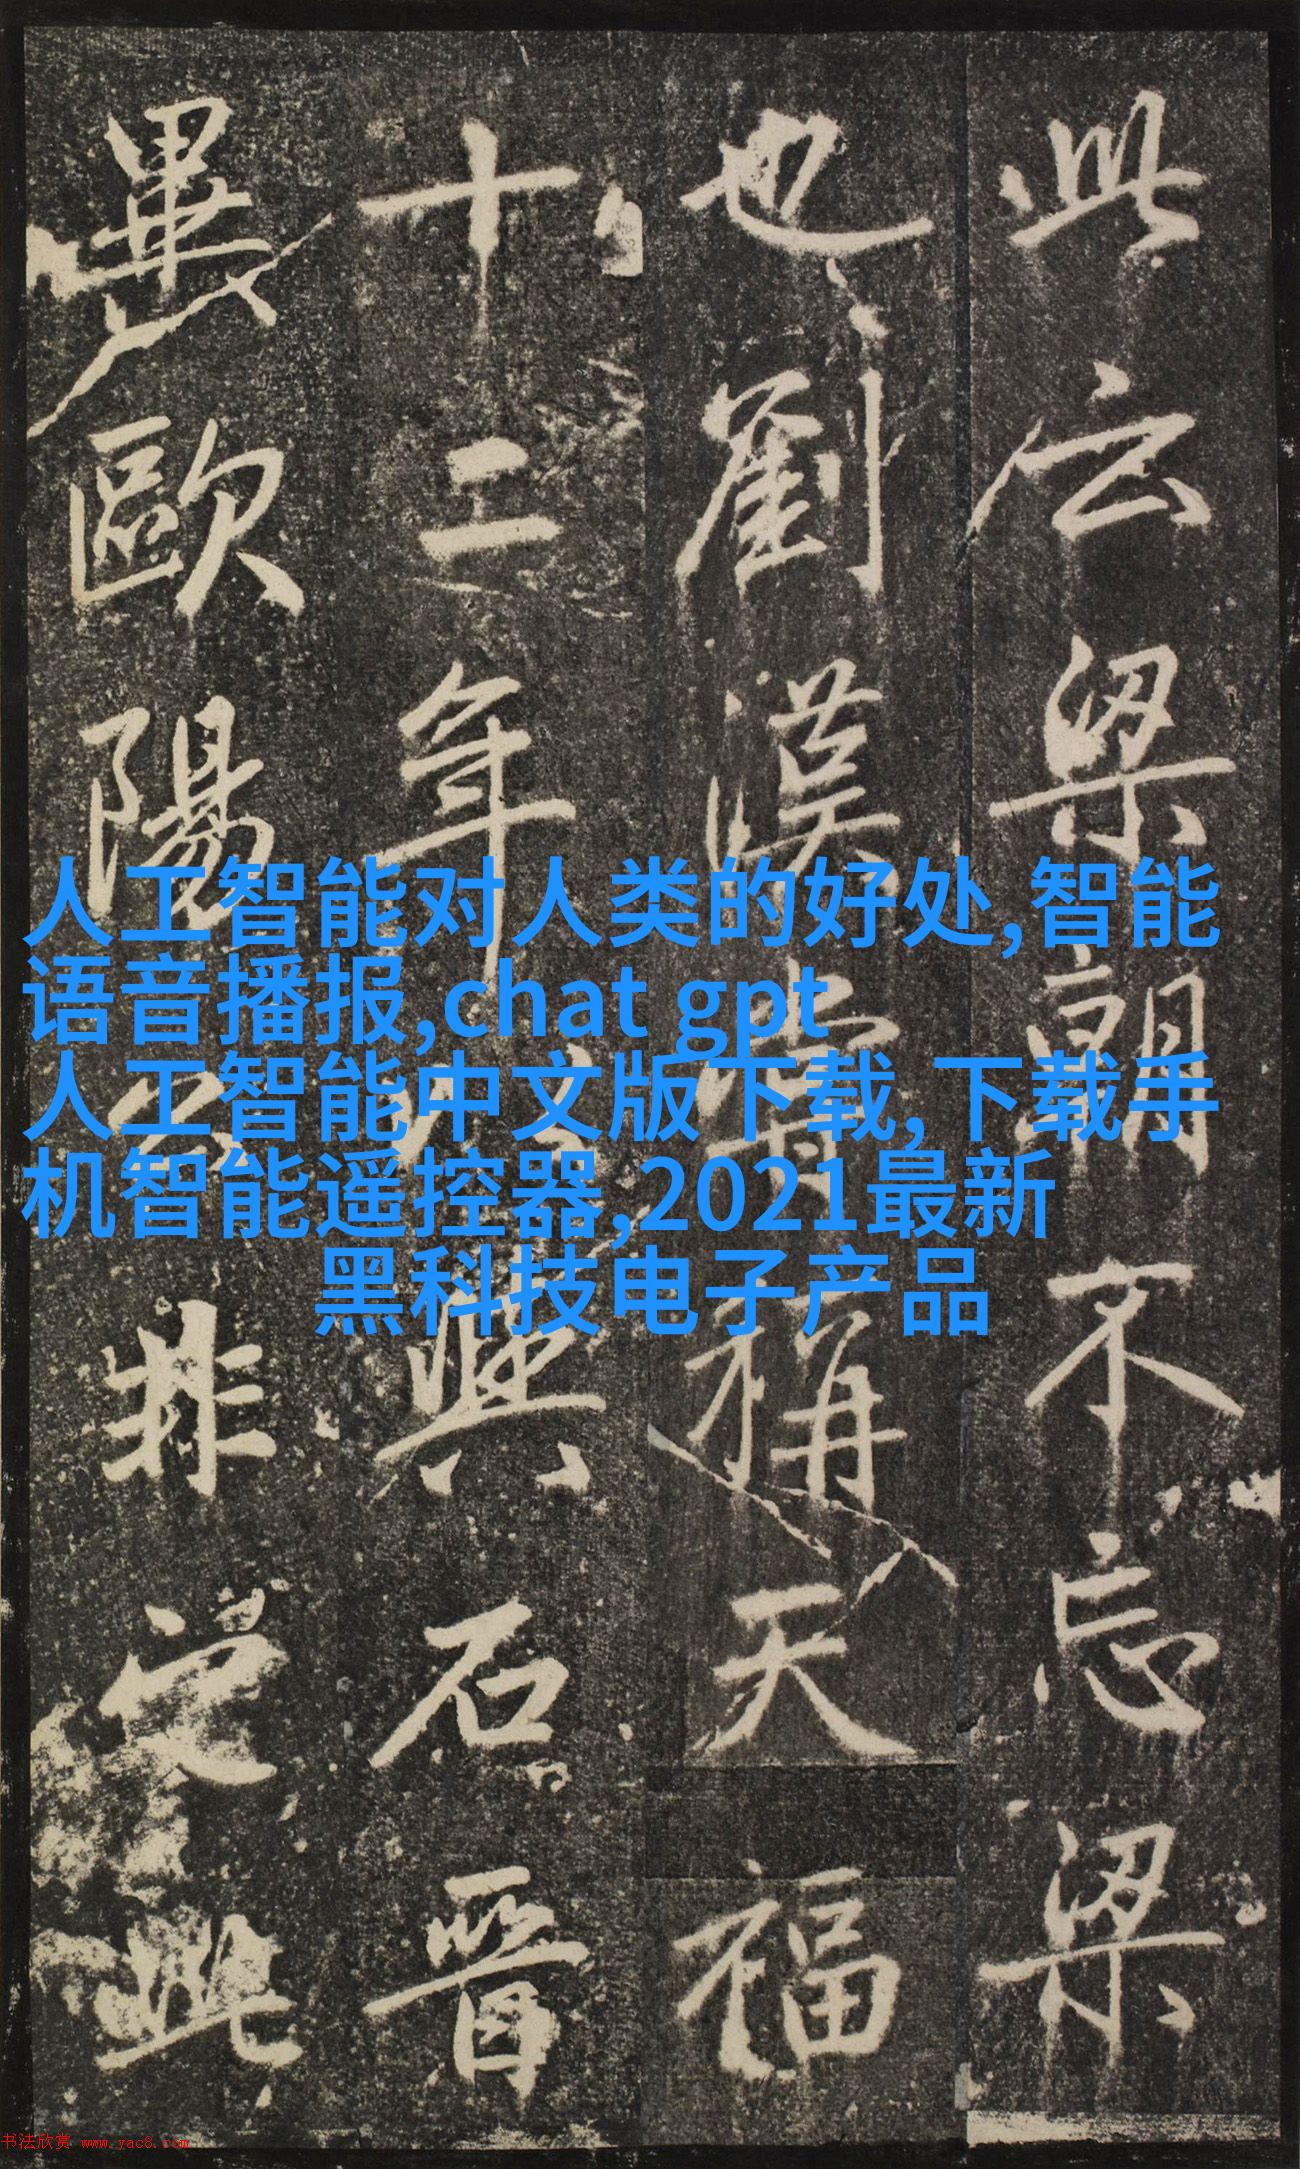 此云梁朝不忘梁
也劉漢稱天福
十二年與石晉
異歐陽公非此
人工智能对人类的好处,智能
语音播报,chat gpt
人工智能中文版下载,下载手
机智能遥控器,2021最新
黑科技电子产品
书法欣赏 www.yac8.com